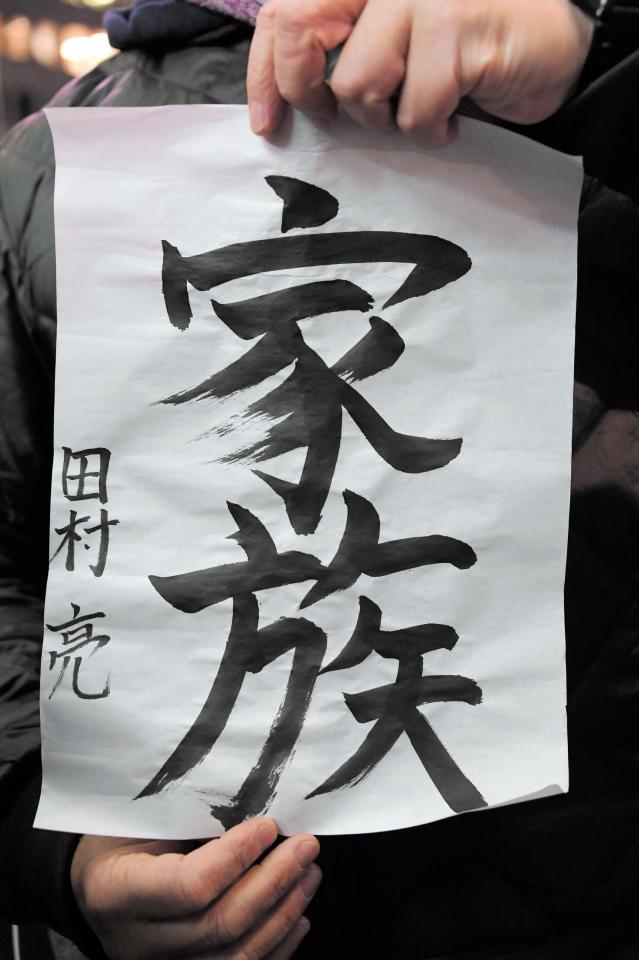 家族
田村 亮